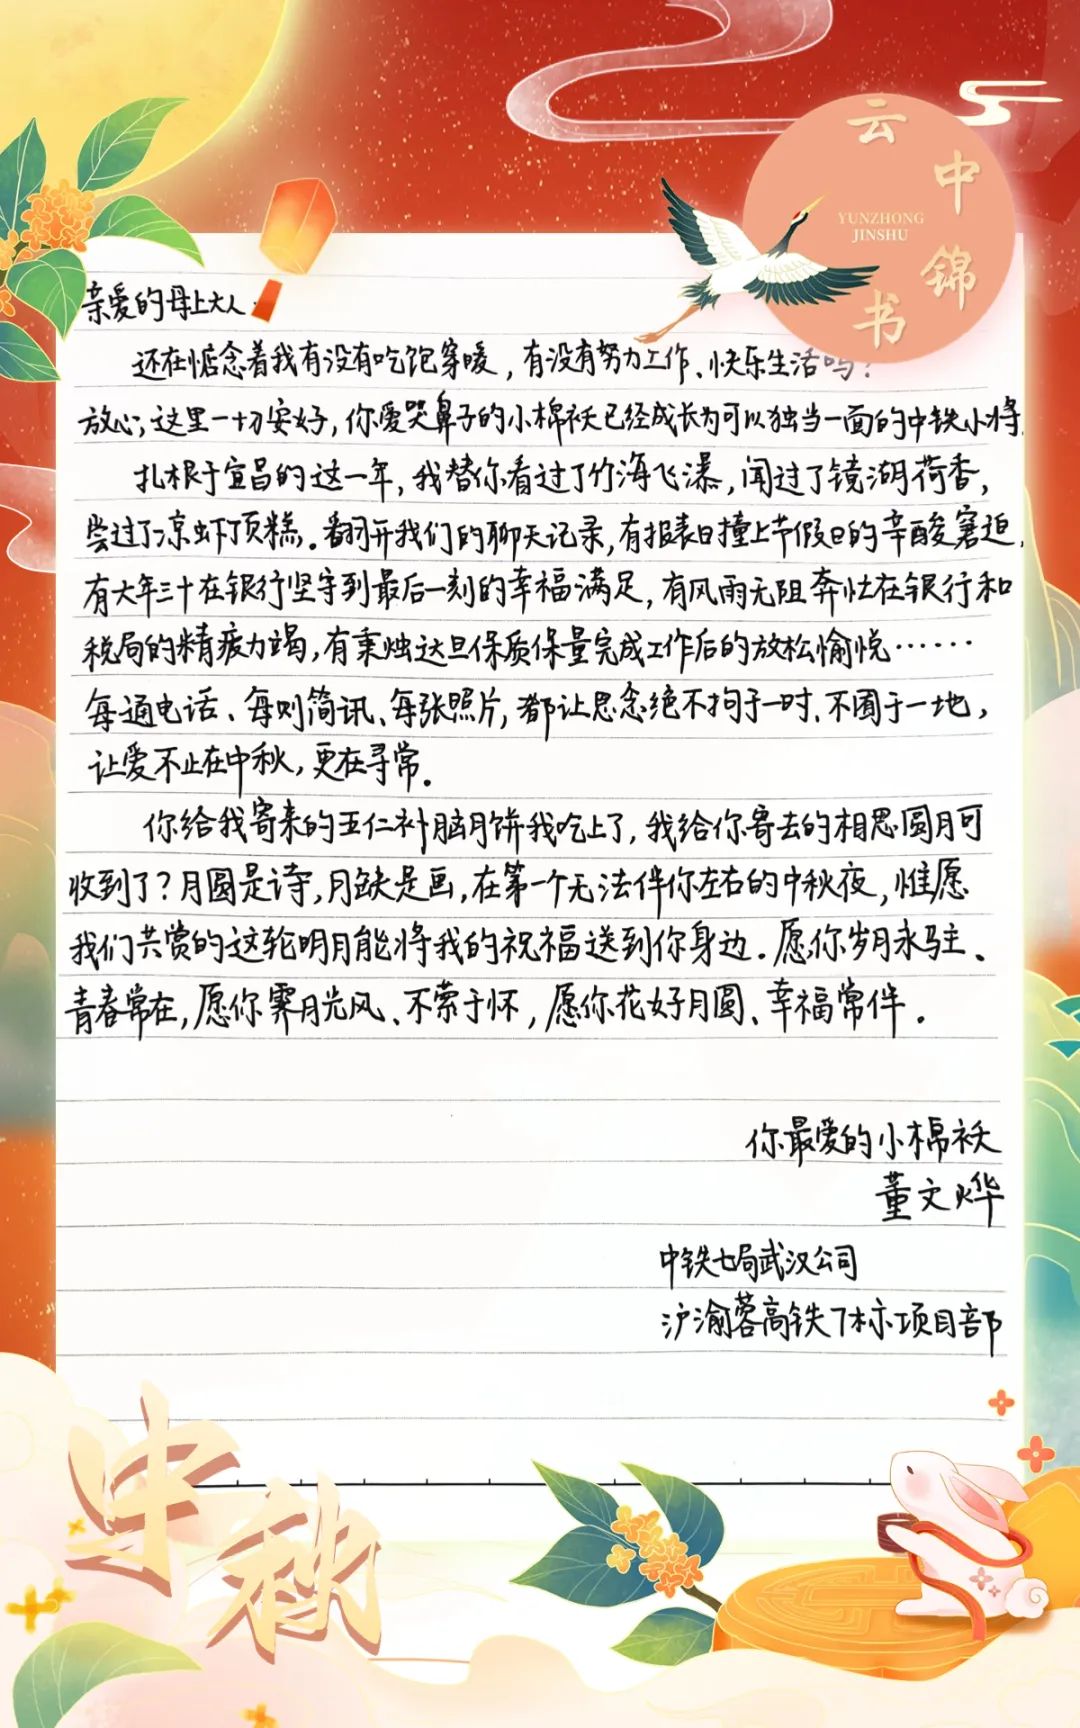 云中锦书
YUNZHONG
JINSHU
亲爱的母上大人：
还在惦念着我有没有吃饱穿暖，有没有努力工作、快乐生活吗？
放心，这里一切安好，你爱哭鼻子的小棉袄已经成长为可以独当一面的中铁小将。
扎根于宜昌的这一年，我替你看过了竹海飞瀑，闻过了镜湖荷香，
尝过了凉虾顶糕。翻开我们的聊天记录，有报表日撞上节假日的辛酸窘迫，
有大年三十在银行坚守到最后一刻的幸福满足，有风雨无阻奔忙在银行和
税局的精疲力竭，有秉烛达旦保质保量完成工作后的放松愉悦……
每通电话、每则简讯、每张照片，都让思念绝不拘于一时、不囿于一地，
让爱不止在中秋，更在寻常。
你给我寄来的五仁补脑月饼我吃上了，我给你寄去的相思圆月可
收到了？月圆是诗，月缺是画，在第一个无法伴你左右的中秋夜，惟愿
我们共赏的这轮明月能将我的祝福送到你身边。愿你岁月永驻、
青春常在，愿你霁月光风、不萦于怀，愿你花好月圆、幸福常伴。
你最爱的小棉袄
董文烨
中铁七局武汉公司
沪渝蓉高铁7标项目部
中秋